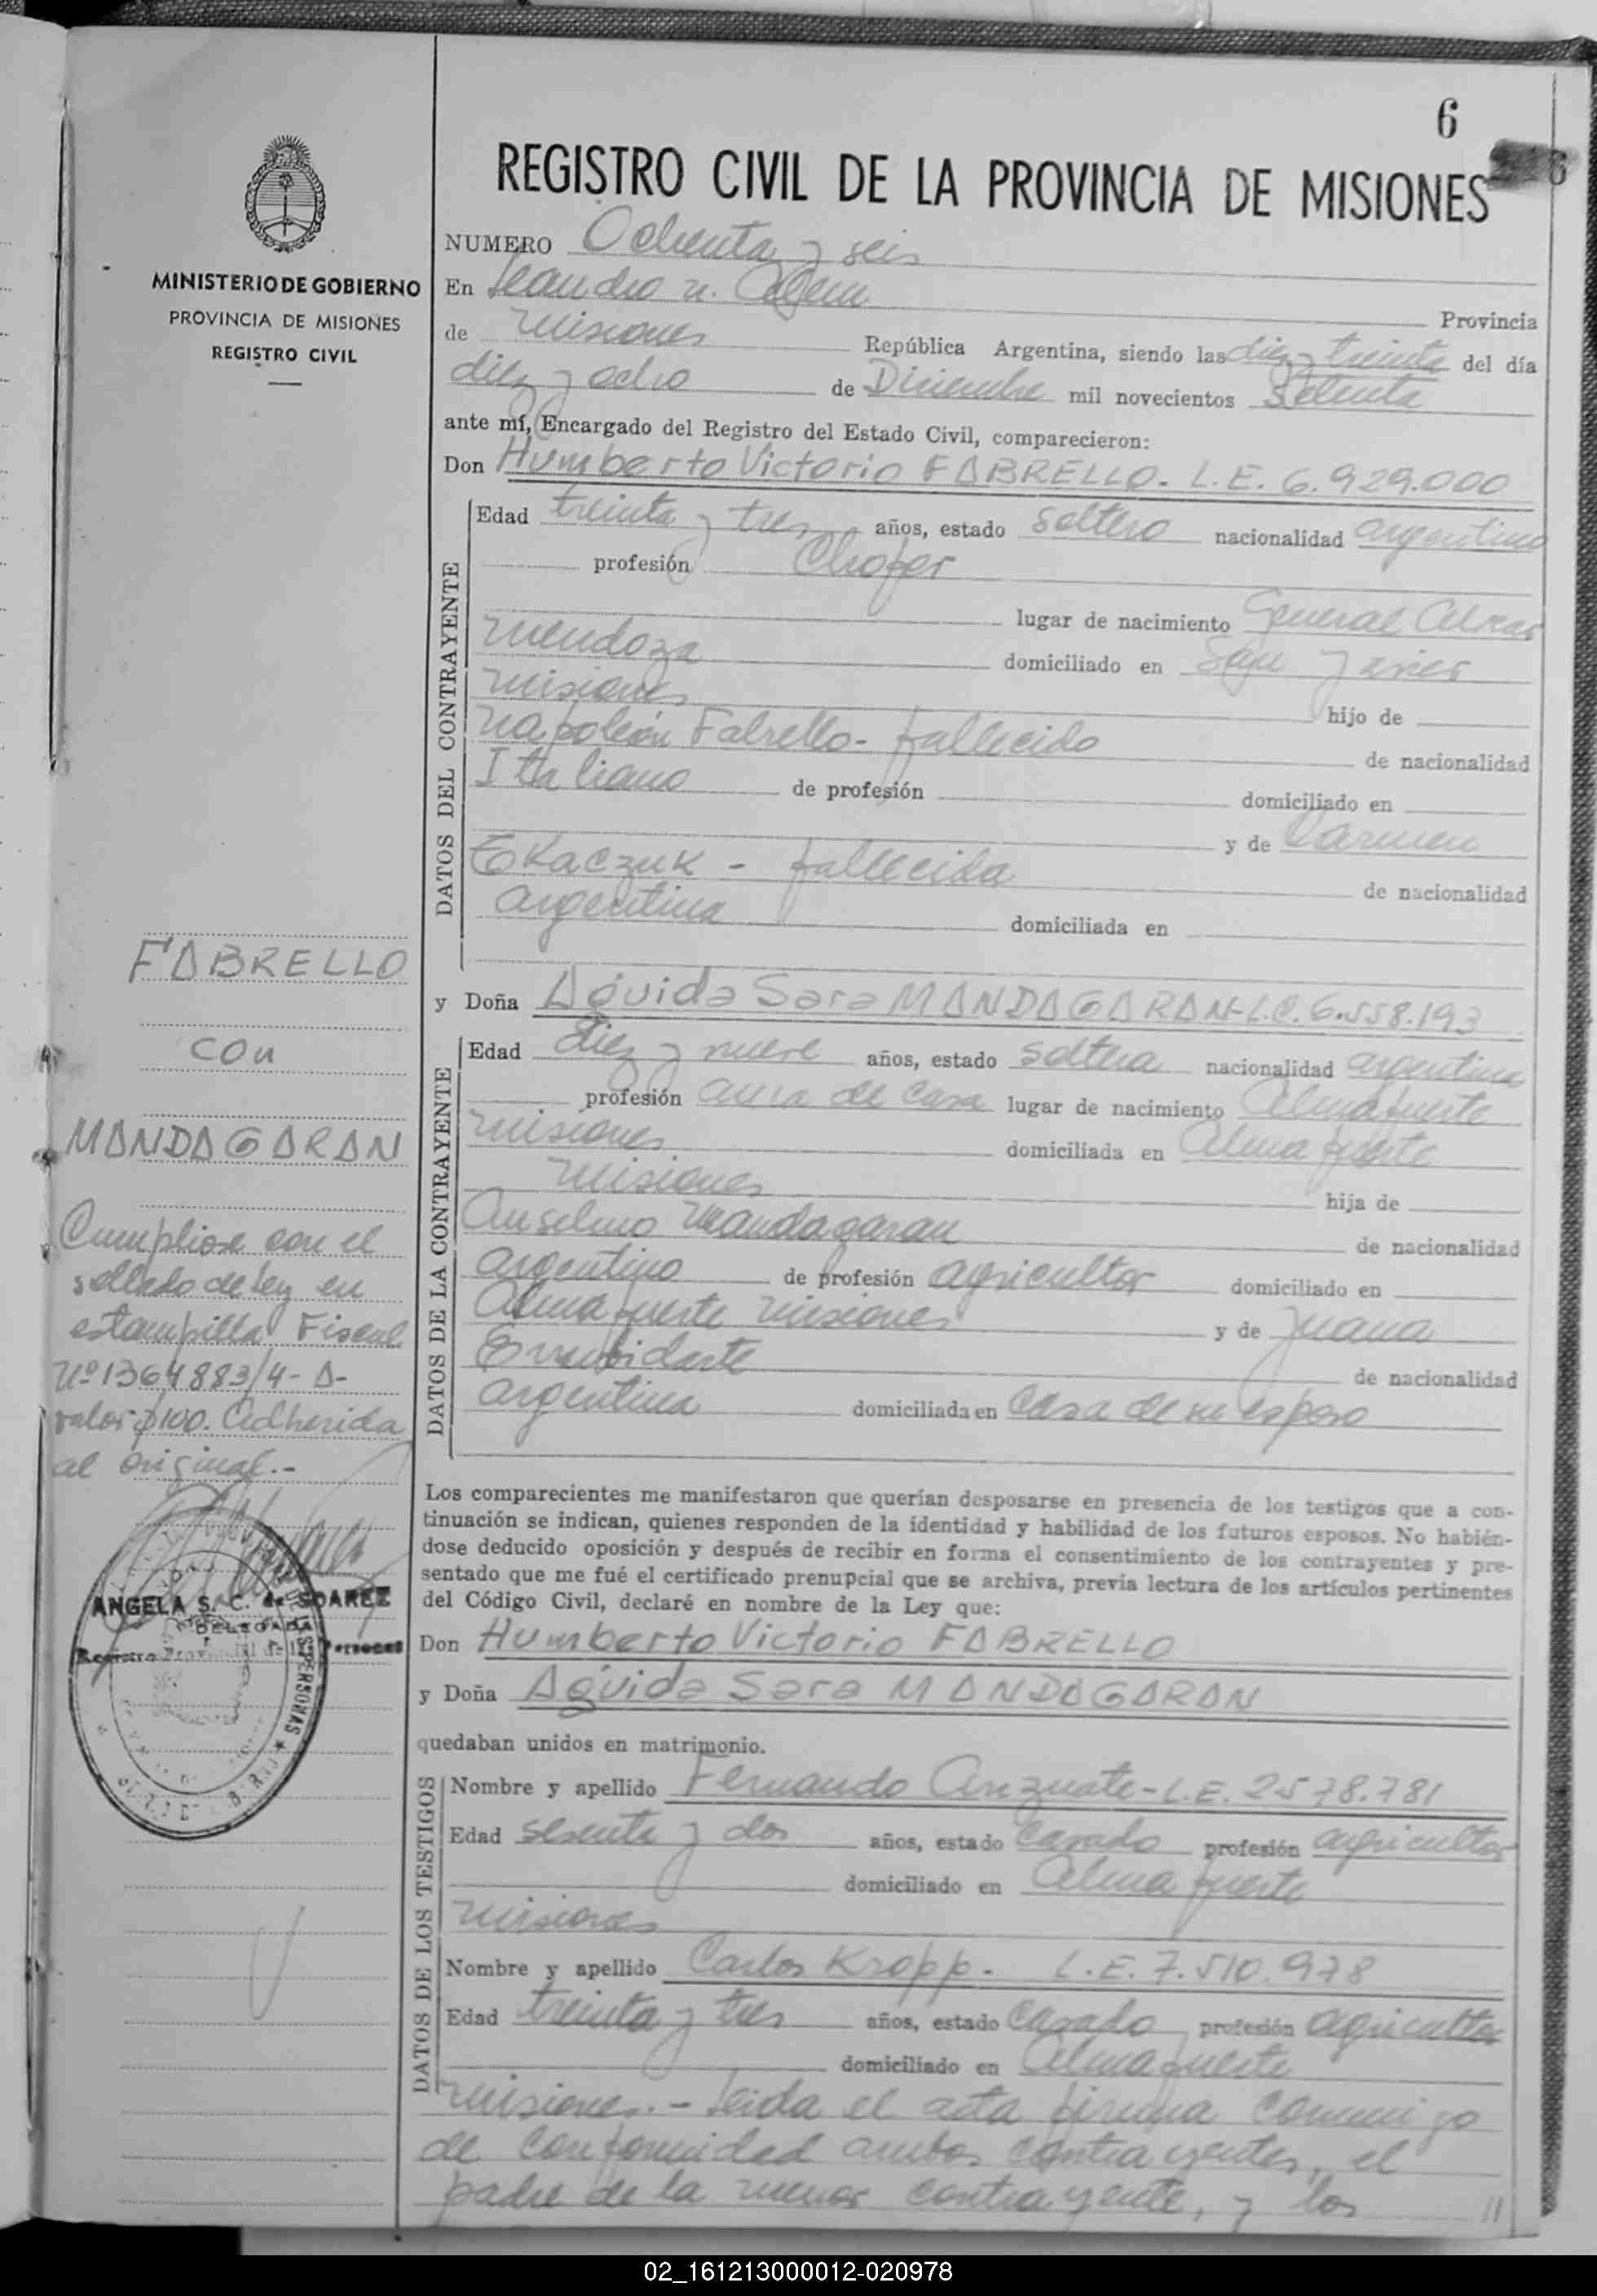 6
REGISTRO CIVIL DE LA PROVINCIA DE MISIONES
MINISTERIO DE GOBIERNO
PROVINCIA DE MISIONES
REGISTRO CIVIL
NUMERO Ochenta y seis
En Leandro N. Alem Provincia
de Misiones República Argentina, siendo las diez y treinta del día
diez y ocho de Diciembre mil novecientos Setenta
ante mí, Encargado del Registro del Estado Civil, comparecieron:
Don Humberto Victorio FABRELLO. L.E. 6.929.000
DATOS DEL CONTRAYENTE
Edad treinta y tres años, estado soltero nacionalidad argentino
profesión Chofer
lugar de nacimiento General Alvear
Mendoza domiciliado en San Javier
Misiones hijo de
Napoleón Fabrello - fallecido de nacionalidad
Italiano de profesión domiciliado en
y de Carmen
Tkaczuk - fallecida de nacionalidad
argentina domiciliada en
y Doña Aguida Sara MANDAGARAN - L.C. 6.558.193
DATOS DE LA CONTRAYENTE
Edad diez y nueve años, estado soltera nacionalidad argentina
profesión ama de casa lugar de nacimiento Almafuerte
Misiones domiciliada en Alma fuerte
Misiones hija de
Anselmo Mandagaran de nacionalidad
argentino de profesión agricultor domiciliado en
Alma fuerte Misiones y de Juana
de nacionalidad
argentina domiciliada en Casa de su esposo
Los comparecientes me manifestaron que querían desposarse en presencia de los testigos que a con-
tinuación se indican, quienes responden de la identidad y habilidad de los futuros esposos. No habién-
dose deducido oposición y después de recibir en forma el consentimiento de los contrayentes y pre-
sentado que me fué el certificado prenupcial que se archiva, previa lectura de los artículos pertinentes
del Código Civil, declaré en nombre de la Ley que:
Don Humberto Victorio FABRELLO
y Doña Aguida Sara MANDAGARAN
quedaban unidos en matrimonio.
DATOS DE LOS TESTIGOS
Nombre y apellido Fernando Anzuate - L.E. 2578.781
Edad sesenta y dos años, estado Casado profesión agricultor
domiciliado en Alma fuerte
Misiones
Nombre y apellido Carlos Kropp. L.E. 7.510.978
Edad treinta y tres años, estado Casado profesión agricultor
domiciliado en Almafuerte
Misiones. - Leida el acta firma conmigo
de conformidad ambos contrayentes, el
padre de la menor contrayente, y los //
FABRELLO
con
MANDAGARAN
Cumpliose con el
sellado de ley en
estampilla Fiscal
Nº 1364883/4 - A -
valor $100. Adherida
al original. -
ANGELA S. C. de SOAREZ
DELEGADA
Registro Provincial de las Personas
02_161213000012-020978